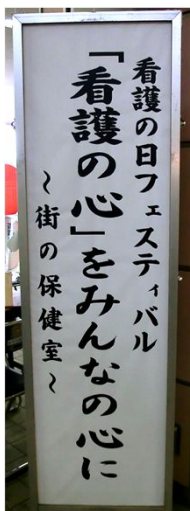 看護の日フェスティバル
「看護の心」をみんなの心に
～街の保健室～